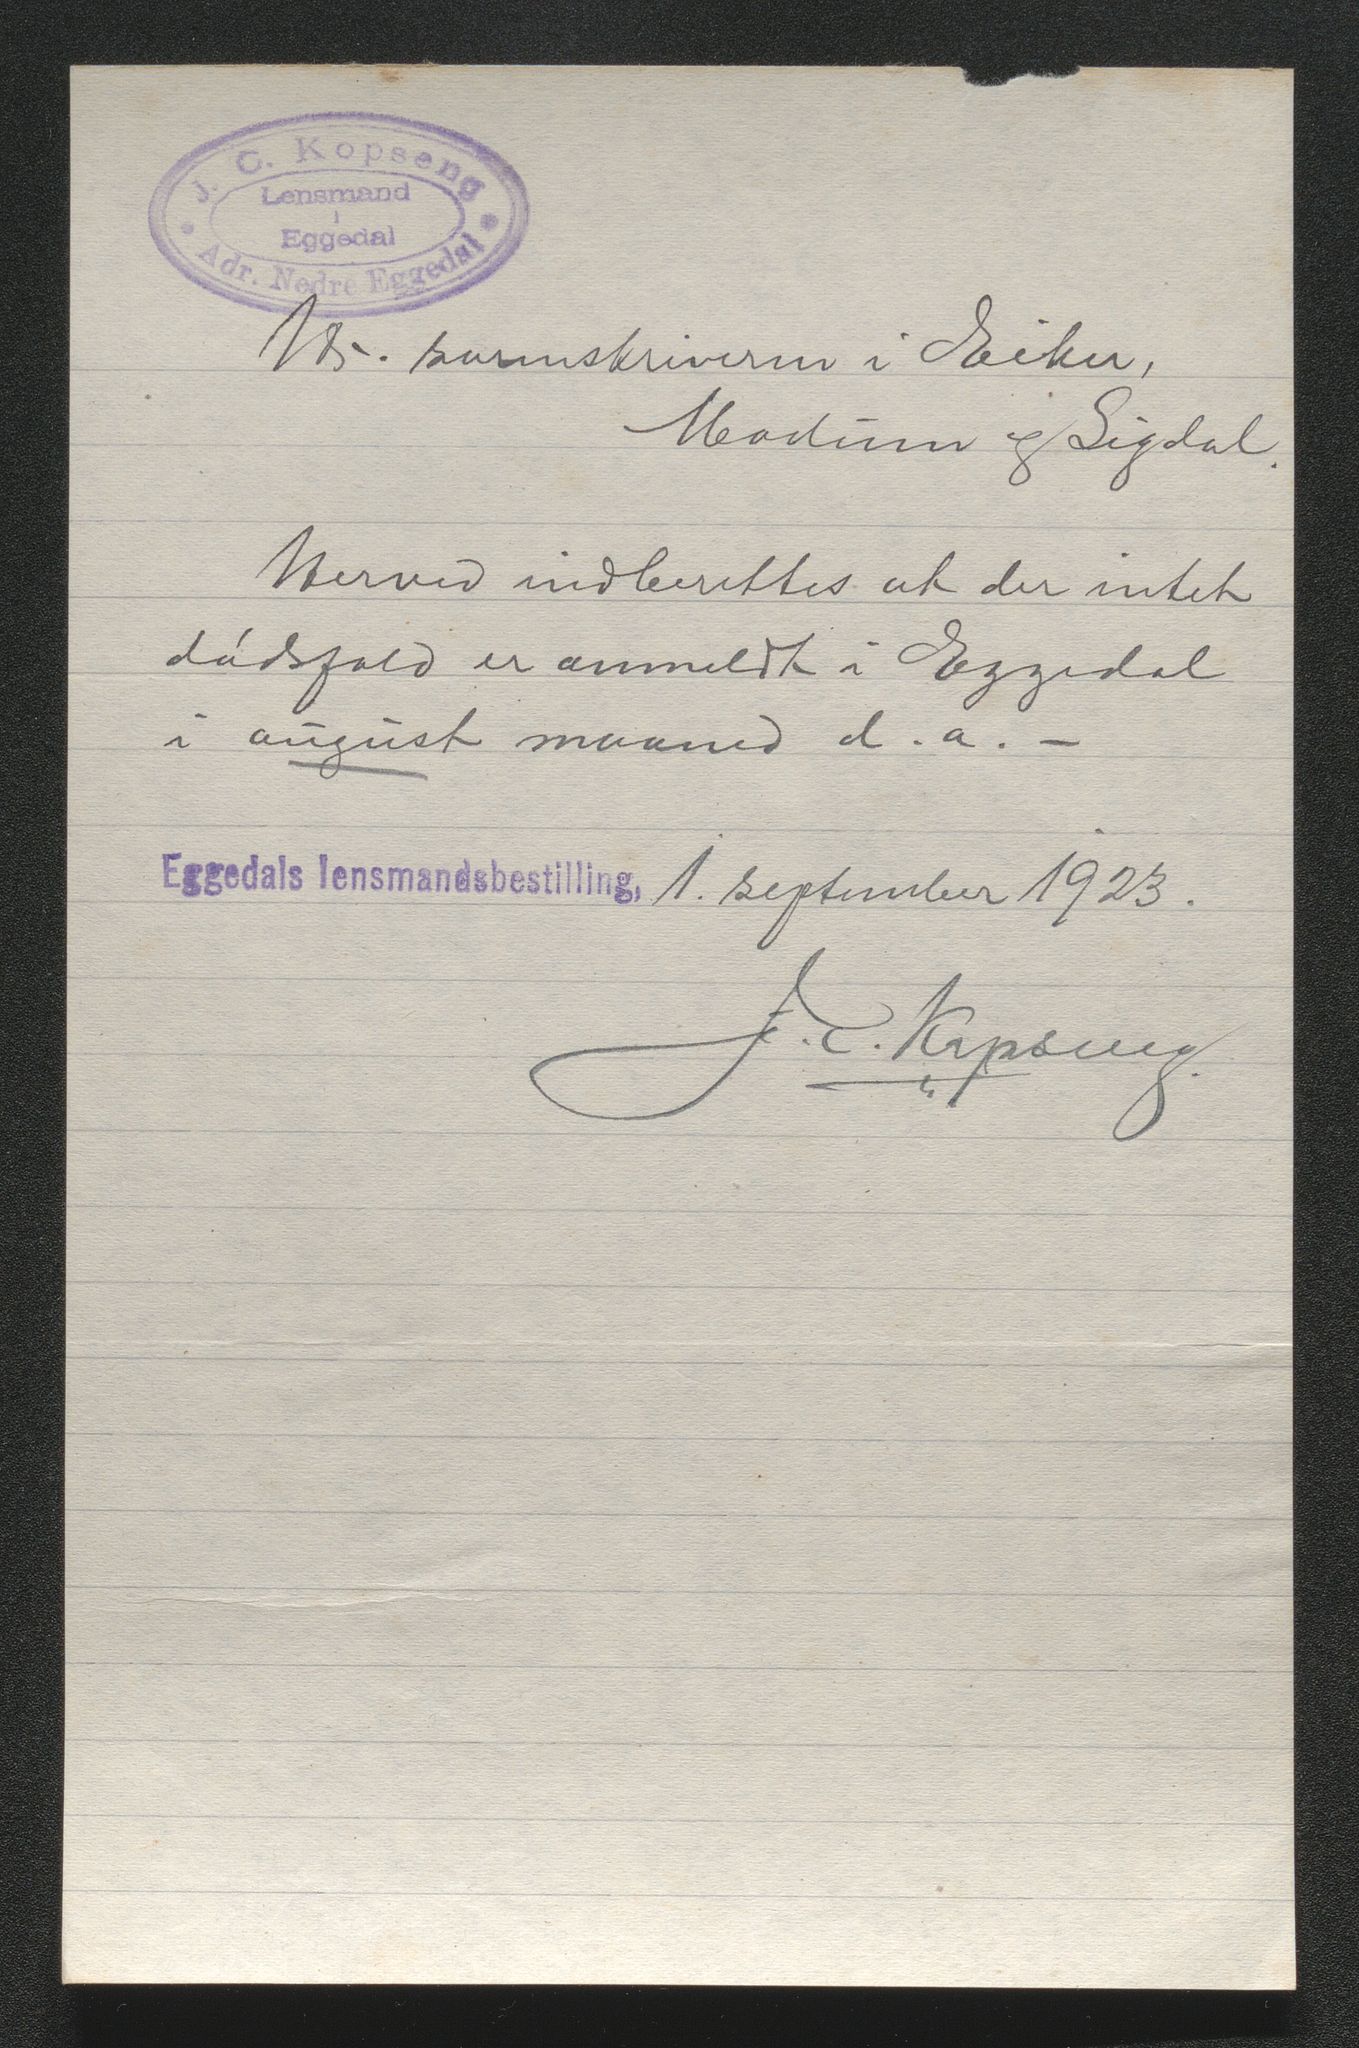 J. C. Kopseng
Lensmand
i
Eggedal
Adr. Nedre Eggedal
Hr. sorenskriveren i Eiker,
Modum og Sigdal.
Herved indberettes at der intet
dødsfald er anmeldt i Eggedal
i august maaned d. a. –
Eggedals lensmandsbestilling, 1. september 1923.
J. C. Kopseng.